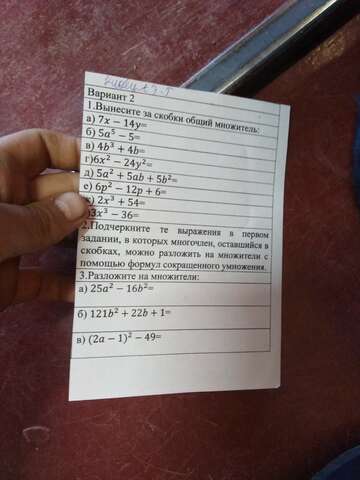 Вариант 2
1.Вынесите за скобки общий множитель:
а) 7x − 14y=
б) 5a⁵ − 5=
в) 4b³ + 4b=
г)6x² − 24y²=
д) 5a² + 5ab + 5b²=
е) 6p² − 12p + 6=
ж) 2x³ + 54=
)3x³ − 36=
2.Подчеркните те выражения в первом
задании, в которых многочлен, оставшийся в
скобках, можно разложить на множители с
помощью формул сокращенного умножения.
3.Разложите на множители:
а) 25a² − 16b²=
б) 121b² + 22b + 1=
в) (2a − 1)² − 49=